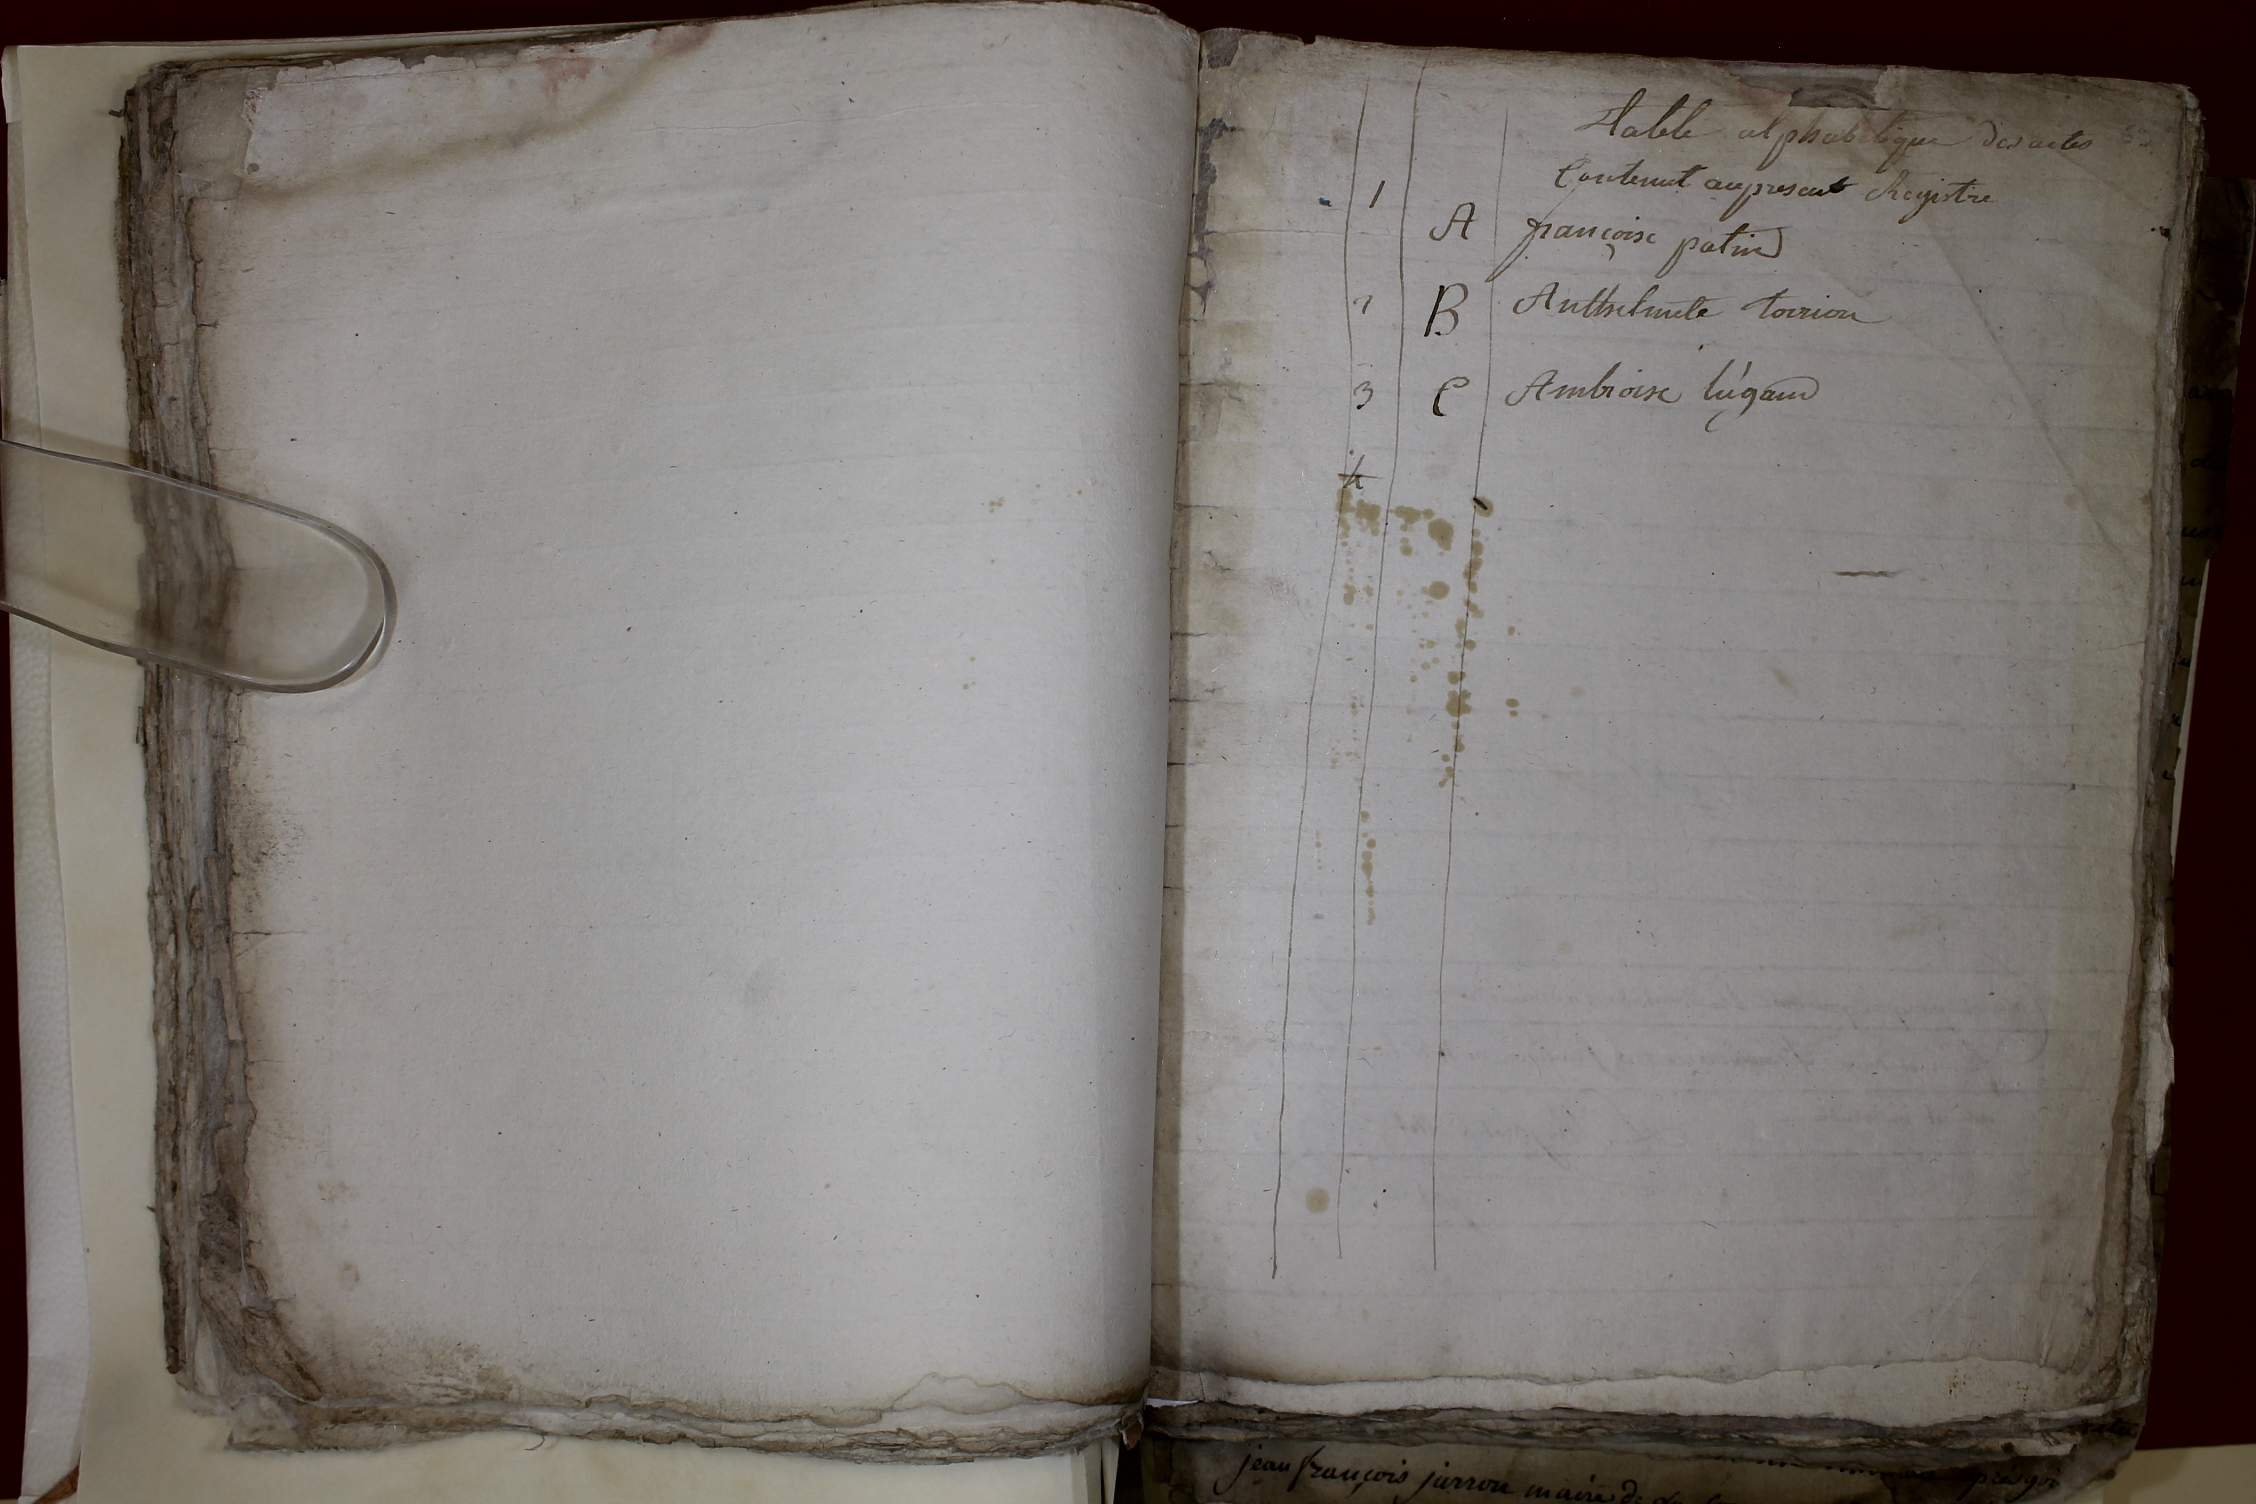 table alphabetique des actes
Contenut au present Registre
1
A françoise patin
2 B Anthelmete toirion
3 C Ambroise lugand
4
jean françois jarron maire de